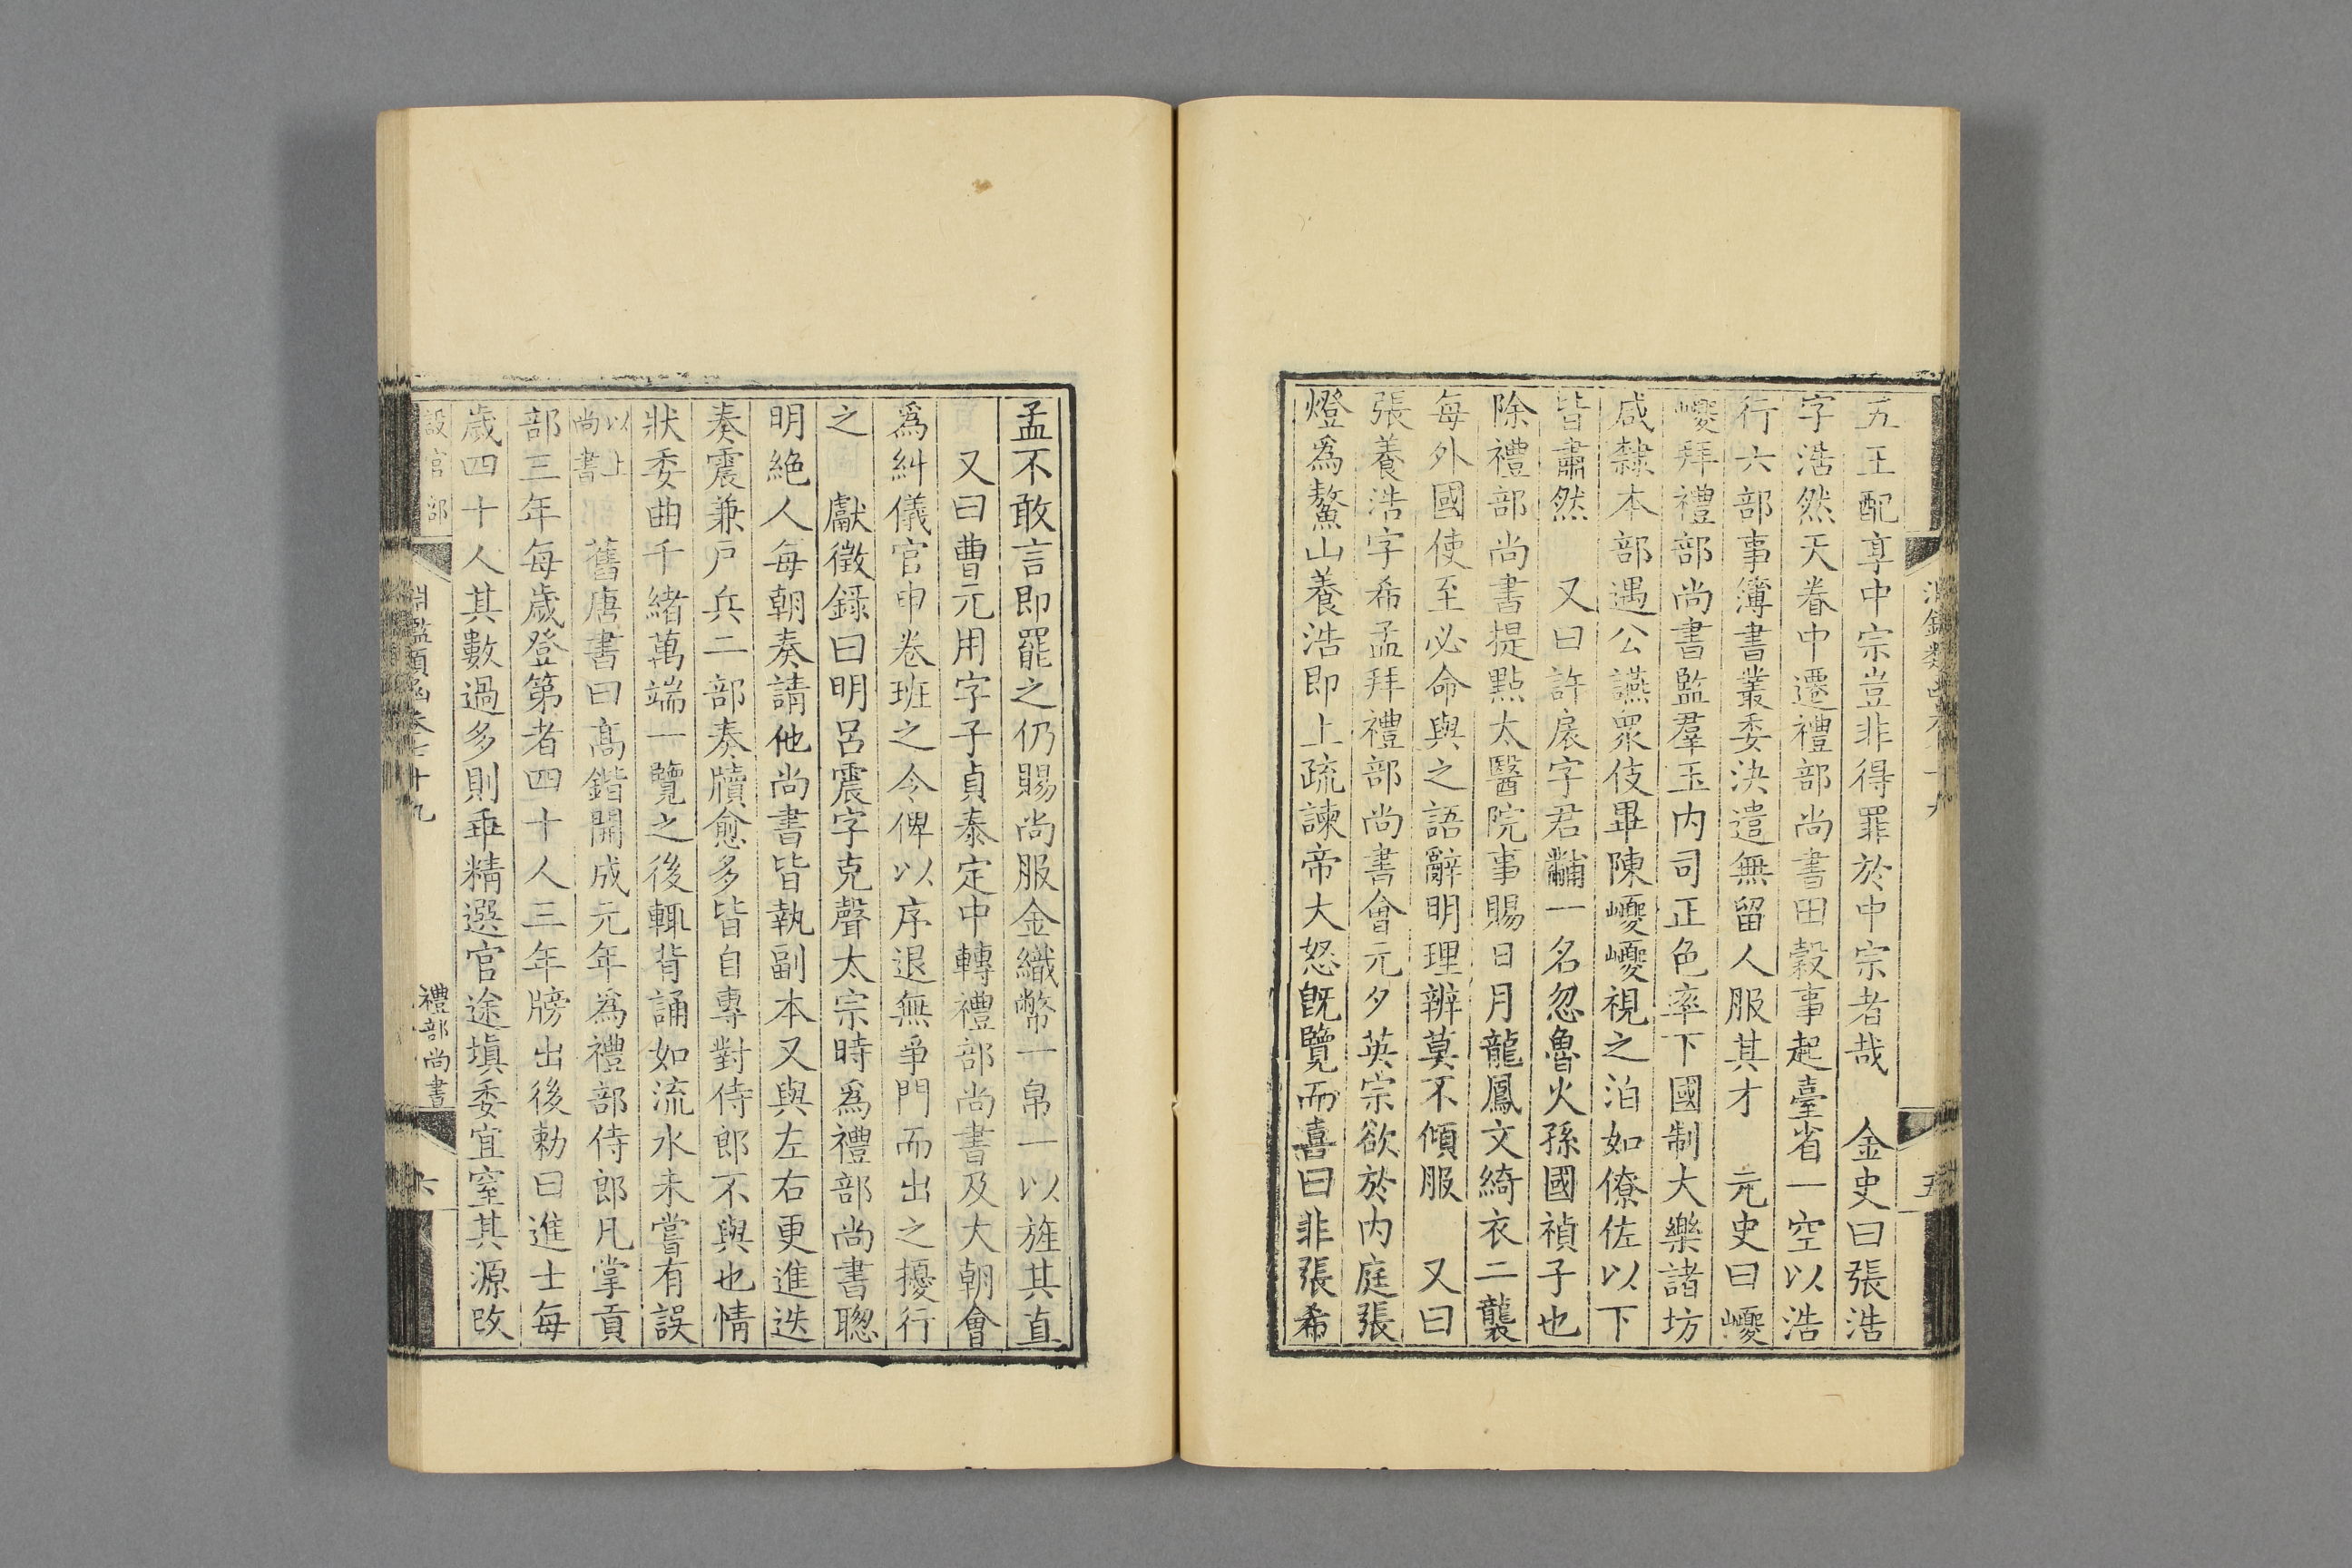 五王配享中宗豈非得罪於中宗者哉　金史曰張浩
字浩然天眷中遷禮部尚書田穀事起臺省一空以浩
行六部事簿書叢委決遣無留人服其才　元史曰巙
巙拜禮部尚書監羣玉内司正色率下國制大樂諸坊
咸隸本部遇公讌衆伎畢陳巙巙視之泊如僚佐以下
皆肅然　又曰許扆字君黼一名忽魯火孫國禎子也
除禮部尚書提點太醫院事賜日月龍鳳文綺衣二襲
每外國使至必命與之語辭明理辨莫不傾服　又曰
張養浩字希孟拜禮部尚書會元夕英宗欲於内庭張
燈爲鰲山養浩即上疏諫帝大怒旣覽而喜曰非張希
孟不敢言即罷之仍賜尚服金織幣一帛一以旌其直
又曰曹元用字子貞泰定中轉禮部尚書及大朝會
爲糾儀官申卷班之令俾以序退無爭門而出之擾行
之　獻徵錄曰明呂震字克聲太宗時爲禮部尚書聰
明絶人每朝奏請他尚書皆執副本又與左右更進迭
奏震兼戶兵二部奏牘愈多皆自專對侍郎不與也情
狀委曲千緒萬端一覽之後輒背誦如流水未嘗有誤
以上尚書　舊唐書曰高鍇開成元年爲禮部侍郎凡掌貢
部三年每歲登第者四十人三年牓出後勅曰進士每
歲四十人其數過多則乖精選官途塡委宜窒其源改
設官部　淵鑑類函卷七十九　禮部尚書　六